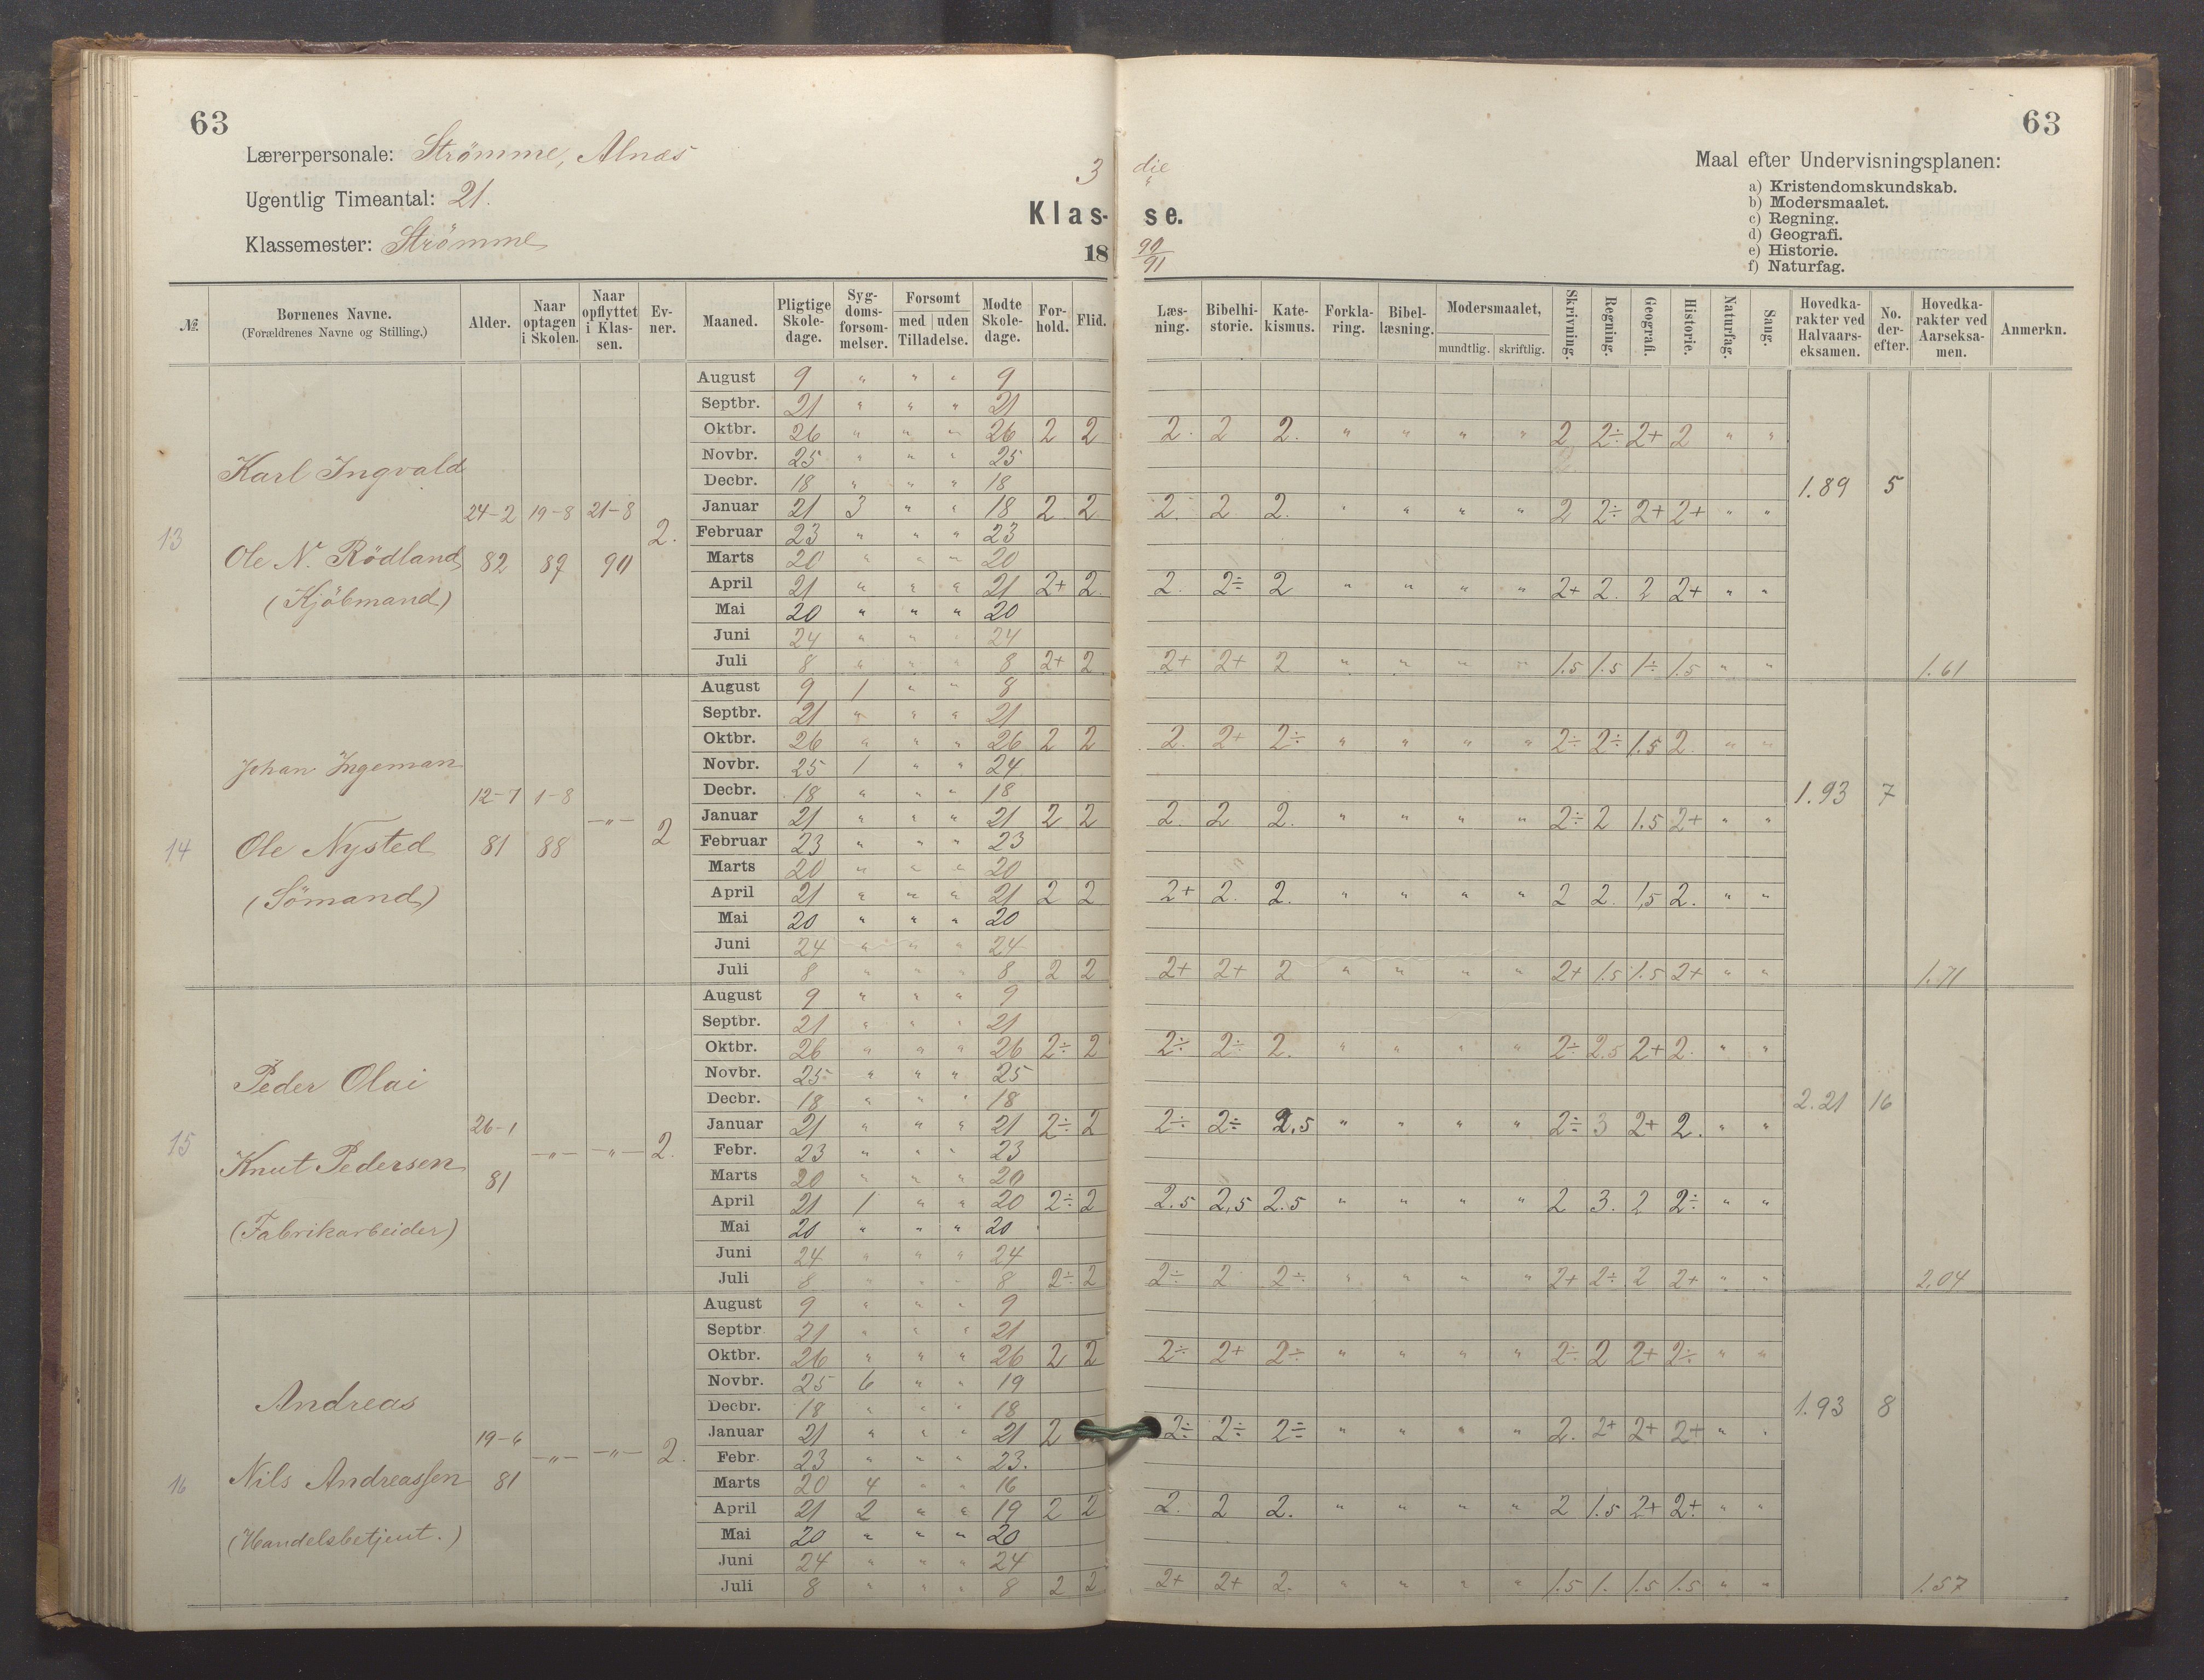 63
63
Lærerpersonale: Strömme, Alnæs
Ugentlig Timeantal: 21.
Klassemester: Strömme
3 die
Klas- se.
18 90/91
Maal efter Undervisningsplanen:
a) Kristendomskundskab.
b) Modersmaalet.
c) Regning.
d) Geografi.
e) Historie.
f) Naturfag.
№ Bornenes Navne. (Forældrenes Navne og Stilling.) Alder. Naar optagen i Skolen. Naar opflyttet i Klassen. Evner. Maaned. Pligtige Skoledage. Sygdomsforsommelser. Forsomt med | uden Tilladelse. Modte Skoledage. Forhold. Flid. Læsning. Bibelhistorie. Katekismus. Forklaring. Bibellæsning. Modersmaalet, mundtlig. skriftlig. Skrivning. Regning. Geografi. Historie. Naturfag. Sang. Hovedkarakter ved Halvaarseksamen. No. derefter. Hovedkarakter ved Aarseksamen. Anmerkn.
13 Karl Ingvald
Ole N. Rödland
(Kjöbmand)
24-2 82 19-8 89 21-8 90 2.
August 9 " " " 9
Septbr. 21 " " " 21
Oktbr. 26 " " " 26 2 2 2. 2 2. " " " " 2 2÷ 2+ 2 " "
Novbr. 25 " " " 25
Decbr. 18 " " " 18 1.89 5
Januar 21 3 " " 18 2 2 2. 2 2. " " " " 2 2÷ 2+ 2+ " "
Februar 23 " " " 23
Marts 20 " " " 20
April 21 " " " 21 2+ 2. 2. 2÷ 2 " " " " 2+ 2. 2 2+ " "
Mai 20 " " " 20
Juni 24 " " " 24
Juli 8 " " " 8 2+ 2 2+ 2+ 2 " " " " 1.5 1.5 1÷ 1.5 " " 1.61
14 Johan Ingeman
Ole Nysted
(Sömand)
12-7 81 1-8 88 -"- 2
August 9 1 " " 8
Septbr. 21 " " " 21
Oktbr. 26 " " " 26 2 2 2. 2+ 2÷ " " " " 2÷ 2÷ 1.5 2. " "
Novbr. 25 1 " " 24
Decbr. 18 " " " 18 1.93 7
Januar 21 " " " 21 2 2 2. 2 2. " " " " 2÷ 2 1.5 2+ " "
Februar 23 " " " 23
Marts 20 " " " 20
April 21 " " " 21 2 2 2+ 2. 2. " " " " 2 2. 1,5 2. " "
Mai 20 " " " 20
Juni 24 " " " 24
Juli 8 " " " 8 2 2 2+ 2+ 2 " " " " 2+ 1.5 1.5 2+ " " 1.71
15 Peder Olai
Knut Pedersen
(Fabrikarbeider)
26-1 81 -"- -"- 2.
August 9 " " " 9
Septbr. 21 " " " 21
Oktbr. 26 " " " 26 2÷ 2 2÷ 2÷ 2. " " " " 2÷ 2.5 2+ 2. " "
Novbr. 25 " " " 25
Decbr. 18 " " " 18 2.21 16
Januar 21 " " " 21 2÷ 2 2÷ 2÷ 2,5 " " " " 2÷ 3 2+ 2. " "
Febr. 23 " " " 23
Marts 20 " " " 20
April 21 1 " " 20 2÷ 2 2.5 2,5 2.5 " " " " 2 3. 2 2÷ " "
Mai 20 " " " 20
Juni 24 " " " 24
Juli 8 " " " 8 2÷ 2 2÷ 2 2÷ " " " " 2+ 2÷ 2 2+ " " 2,04
16 Andreas
Nils Andreassen
(Handelsbetjent.)
19-6 81 -"- -"- 2.
August 9 " " " 9
Septbr 21 " " " 21
Oktbr. 26 " " " 26 2 2 2÷ 2+ 2÷ " " " " 2÷ 2 2+ 2÷ " "
Novbr. 25 6 " " 19
Decbr. 18 " " " 18 1.93 8
Januar 21 " " " 21 2 2÷ 2÷ 2÷ " " " " 2. 2+ 2+ 2+ " "
Febr. 23 " " " 23.
Marts 20 4 " " 16
April 21 2 " " 19 2 2 2. 2 2. " " " " 2 1.5 2+ 2+ " "
Mai 20 " " " 20
Juni 24 " " " 24
Juli 8 " " " 8 2 2 2+ 2+ 2. " " " " 1.5 1. 1.5 1.5 " " 1.57